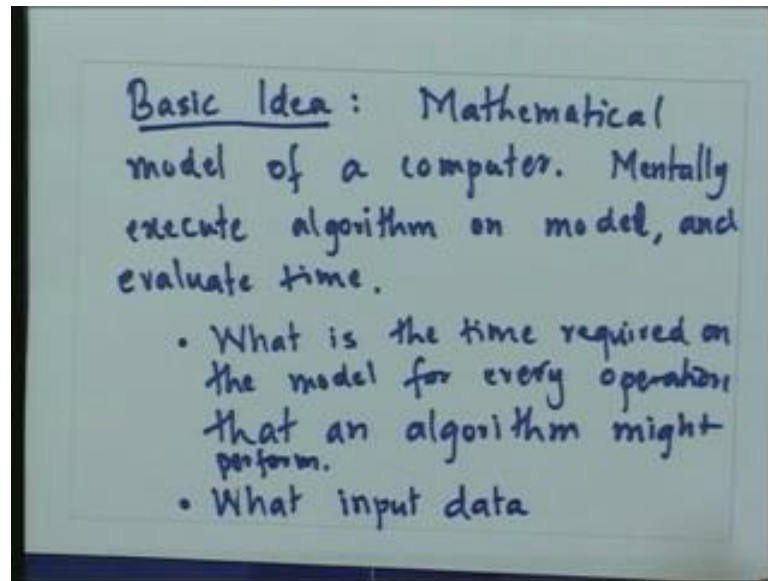 Basic Idea : Mathematical
model of a computer. Mentally
execute algorithm on model, and
evaluate time.
• What is the time required on
the model for every operation
that an algorithm might
perform.
• What input data